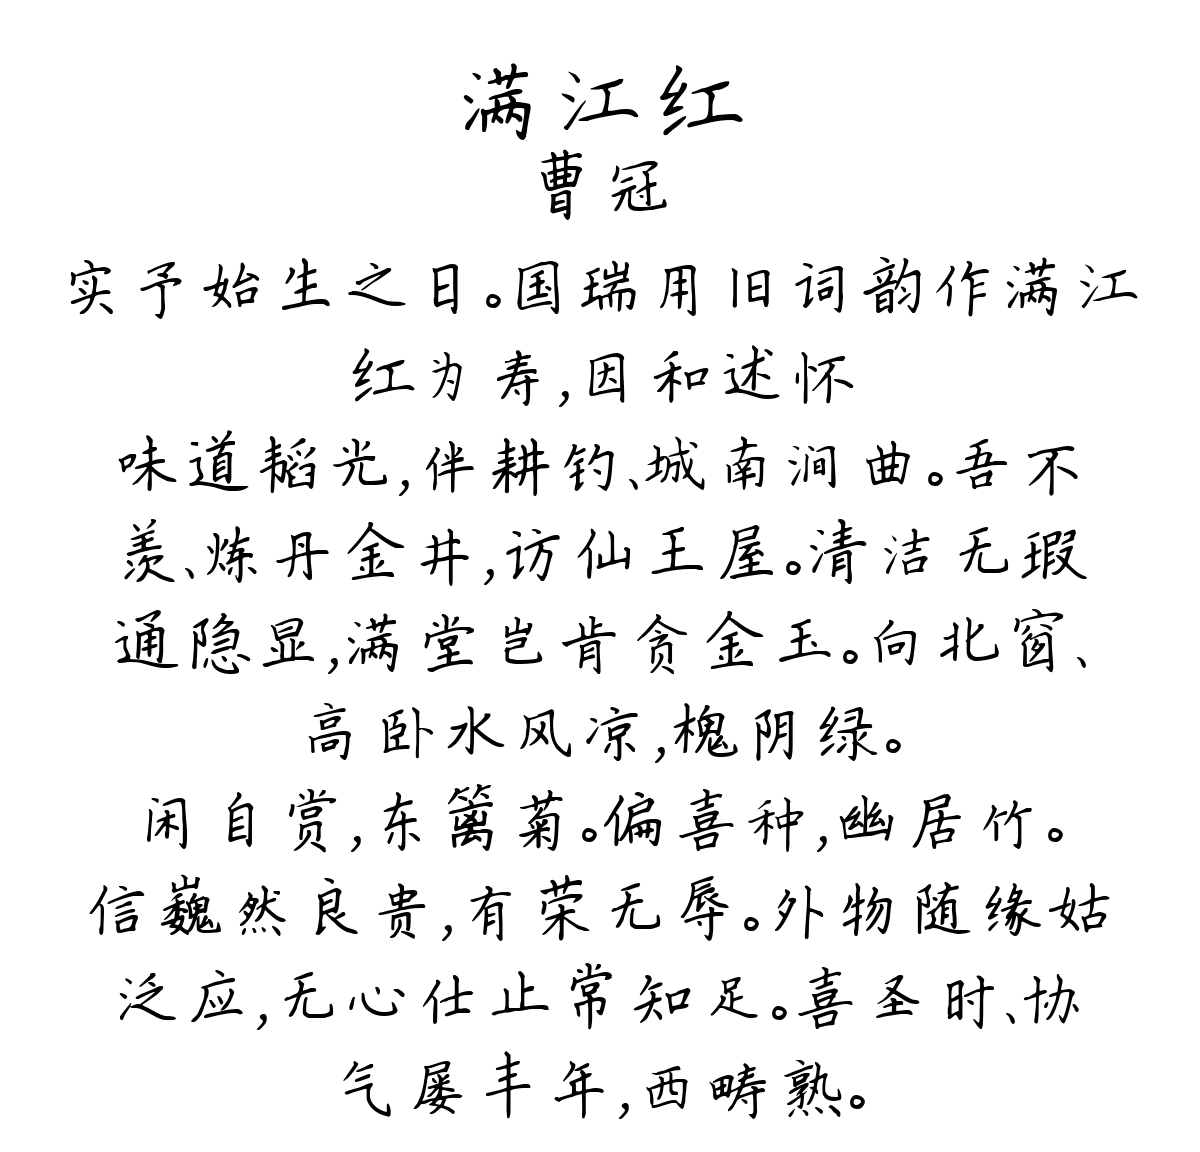 满江红
曹冠
实予始生之日。国瑞用旧词韵作满江
红为寿,因和述怀
味道韬光,伴耕钓、城南涧曲。吾不
羡、炼丹金井,访仙王屋。清洁无瑕
通隐显,满堂岂肯贪金玉。向北窗、
高卧水风凉,槐阴绿。
闲自赏,东篱菊。偏喜种,幽居竹。
信巍然良贵,有荣无辱。外物随缘姑
泛应,无心仕止常知足。喜圣时、协
气屡丰年,西畴熟。